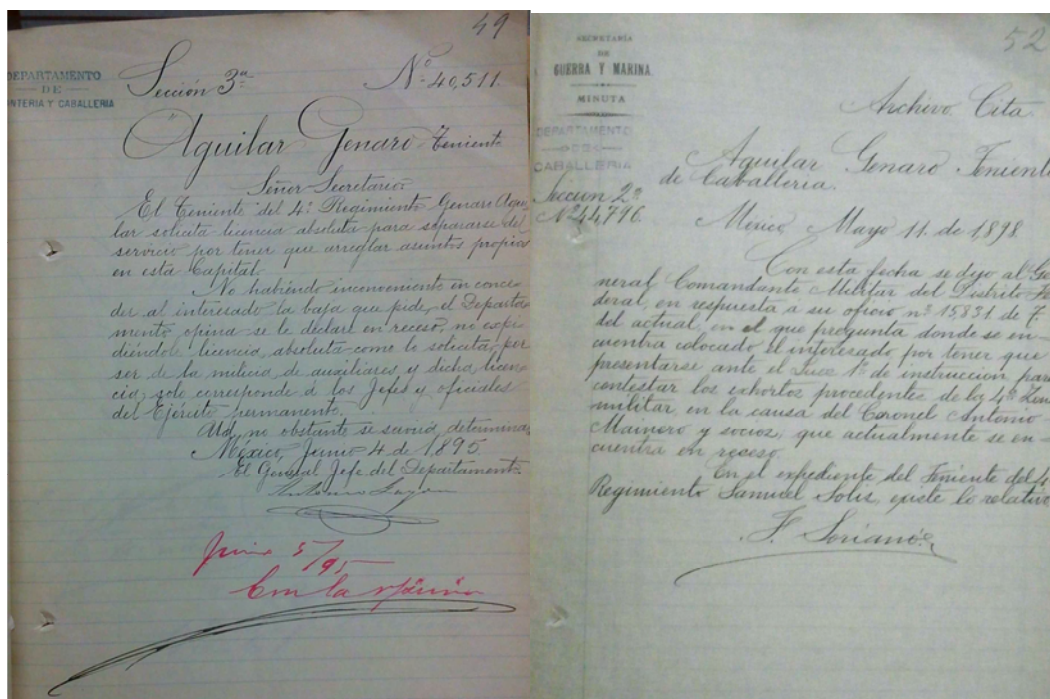 49
DEPARTAMENTO
DE
NTERIA Y CABALLERIA
Sección 3ª
Nº 40,511.
Aguilar Genaro Teniente
Señor Secretario
El Teniente del 4º Regimiento Genaro Agui
lar solicita licencia absoluta para separarse del
servicio por tener que arreglar asuntos propios
en esta Capital.
No habiendo inconveniente en conce-
der al interesado la baja que pide, el Departa
mento opina se le declare en receso, no expi-
diéndole licencia absoluta como lo solicita, por
ser de la milicia de auxiliares y dicha licen-
cia, solo corresponde á los Jefes y oficiales
del Ejército permanente.
Ud. no obstante se servirá determinar
México, Junio 4 de 1895.
El General Jefe del Departamento
Junio 5/95
Con la opinión
52
SECRETARÍA
DE
GUERRA Y MARINA
MINUTA
DEPARTAMENTO
DE
CABALLERIA
Sección 2ª
Nº 44,796.
Archivo. Cita
Aguilar Genaro Teniente
de Caballería.
México Mayo 11. de 1,898.
Con esta fecha se dijo al Ge
neral Comandante Militar del Distrito Fe
deral, en respuesta á su oficio nº 15,831 de 7
del actual, en el que pregunta donde se en-
cuentra colocado el interesado por tener que
presentarse ante el Juez 1º de instruccion para
contestar los exhortos procedentes de la 4ª Zona
militar en la causa del Coronel Antonio
Mainero y socios, que actualmente se en-
cuentra en receso.
En el expediente del Teniente del 4º
Regimiento Samuel Solis, existe lo relativo
F. Soriano